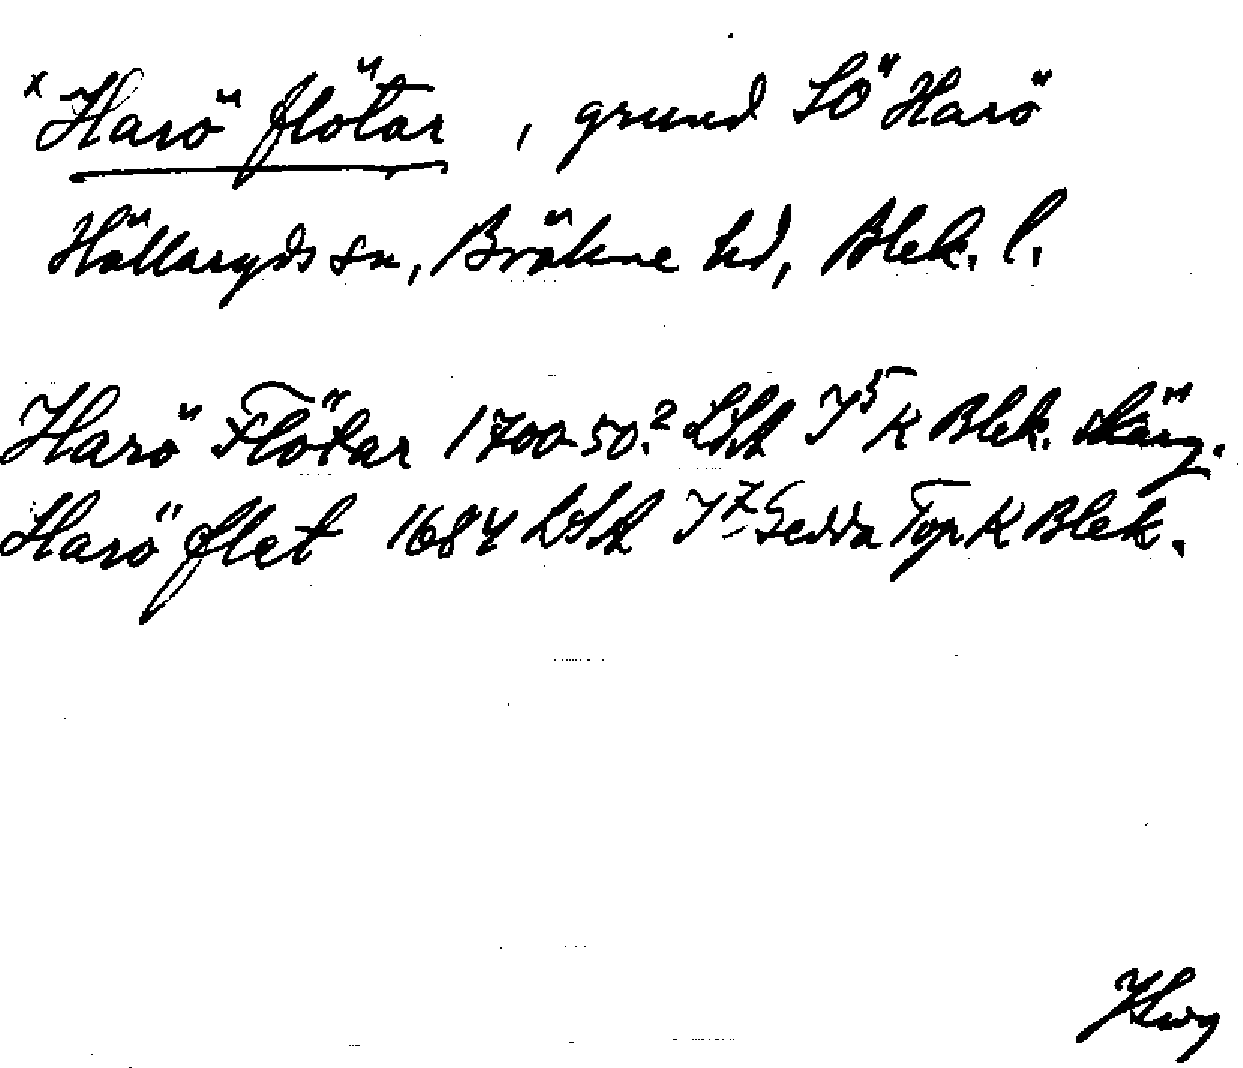 x Harö flötar, grund SÖ Harö
Hällaryds sn, Bräkne hd, Blek. l.
Harö Flötar 1700-50? LSA J5 K Blek. skärg.
Harö flet 1684 LSA J7 Gedda Top K Blek.